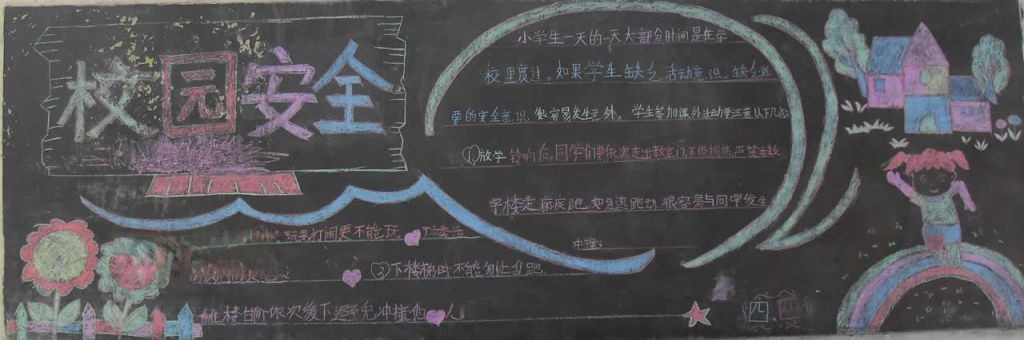 校园安全
小学生一天的一天大部分时间是在学
校里度过。如果学生缺乏活动意识,缺乏必
要的安全意识,很容易发生意外。学生参加课外活动要注意以下几点
①放学铃响后,同学们要依次走出教室门,不能拥挤,严禁在教
学楼走廊疾跑,如急速跑动很容易与同学发生
冲撞;
玩耍打闹更不能玩
②下楼梯时不能勿忙乱跑
楼台阶依次缓下避免冲撞他人
四、四